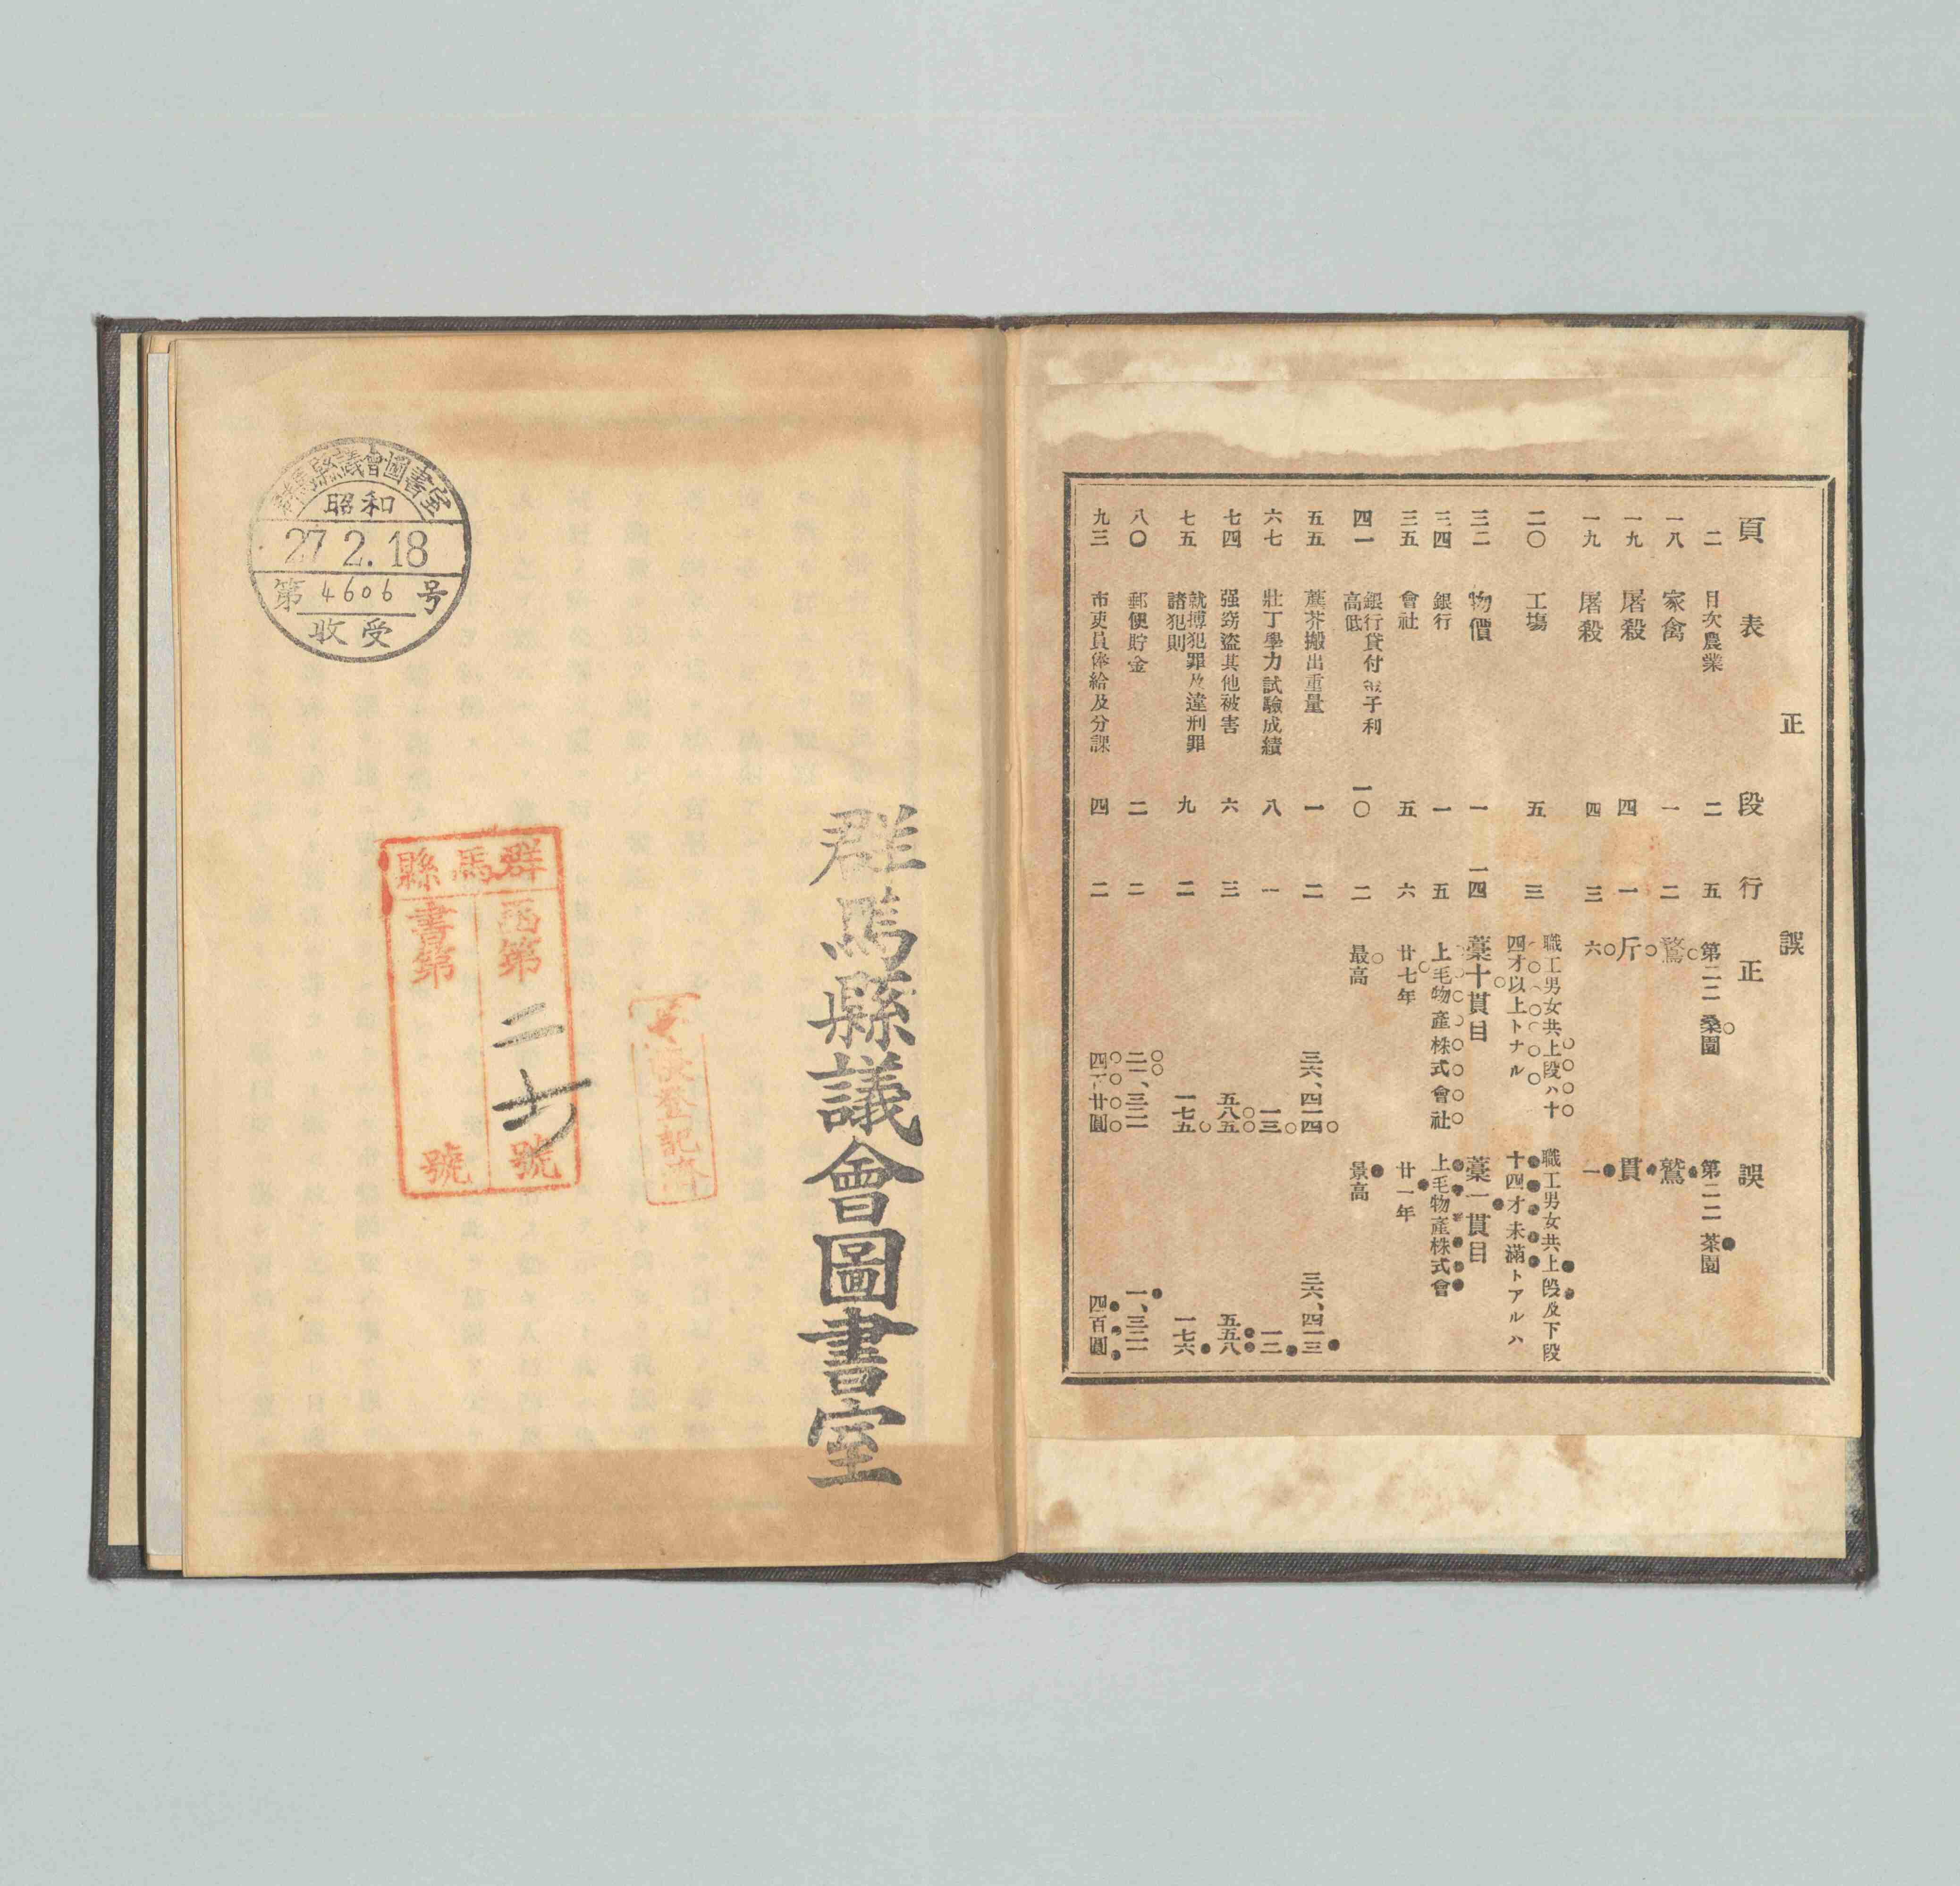 正誤
頁 表 段 行 正 誤
二 目次農業 二 五 第二二 桑園 第二二 茶園
一八 家禽 一 二 鶩 鷲
一九 屠殺 四 一 斤 貫
一九 屠殺 四 三 六 一
二〇 工塲 五 三 職工男女共上段ハ十四才以上トナル 職工男女共上段及下段十四才未滿トアルハ
三二 物價 一 一四 藁十貫目 藁一貫目
三四 銀行 一 五 上毛物產株式會社 上毛物產株式會
三五 會社 五 六 廿七年 廿一年
四一 銀行貸付金子利高低 一〇 二 最高 景高
五五 蔗芥搬出重量 一 二 三六、四一四 三六、四一三
六七 壯丁學力試驗成績 八 一 一三 一二
七四 强窃盜其他被害 六 三 五八五 五五八
七五 就搏犯罪及違刑罪諸犯則 九 二 一七五 一七六
八〇 郵便貯金 二 二 二一、三二一 一、三二一
九三 市吏員俸給及分課 四 二 四百廿圓 四百圓
群馬縣議會圖書室
群馬縣
函第二七號
書第 號
登記濟
群馬縣議會圖書室
昭和
27 2. 18
第4606号
收受